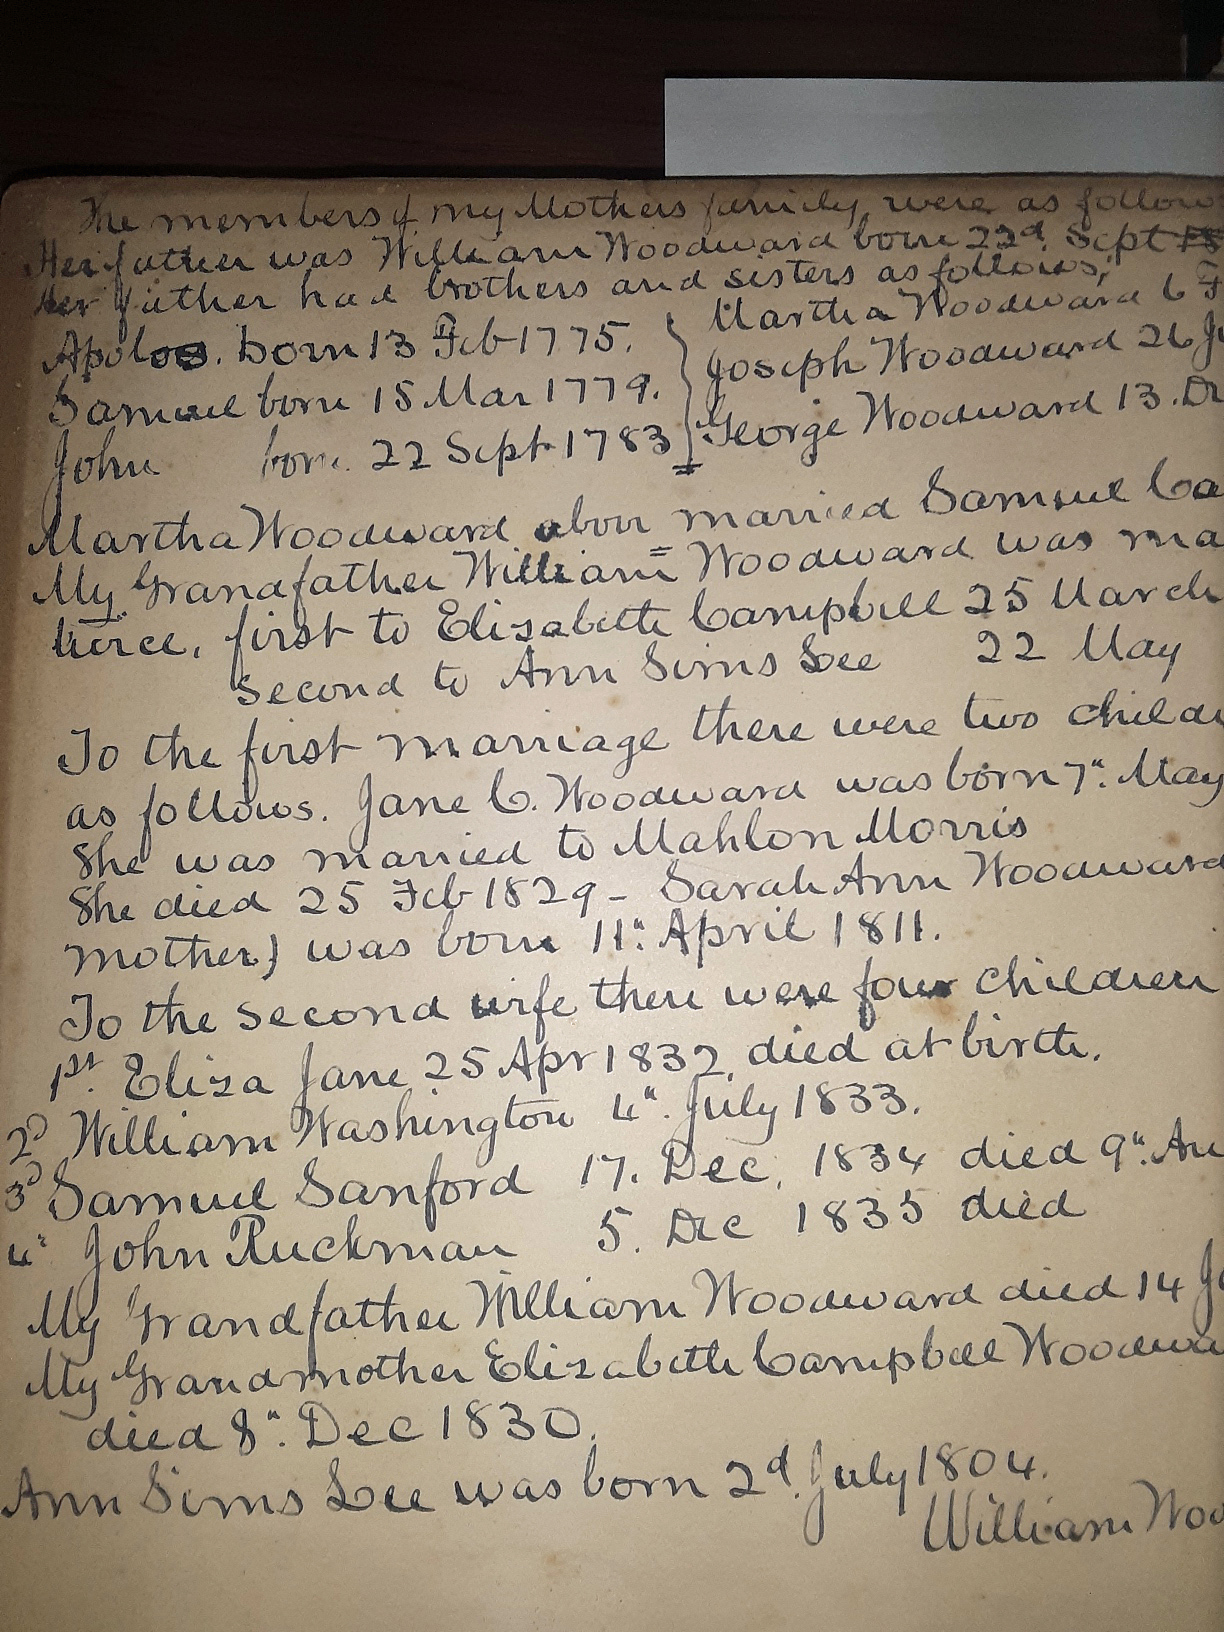 The members of my Mothers family were as follow
Her father was William Woodward born 22d. Sept
Her father had brothers and sisters as follows,
Apolos. born 13 Feb 1775. } Martha Woodward 6 F
Samuel born 15 Mar 1779. } Joseph Woodward 26 Ju
John born. 22 Sept 1783 } George Woodward 13. De
Martha Woodward above married Samuel Ca
My Grandfather William Woodward was ma
twice, first to Elizabeth Campbell 25 March
second to Ann Sims Lee 22 May
To the first marriage there were two childr
as follows. Jane C. Woodward was born 7". May
She was married to Mahlon Morris
She died 25 Feb 1829 - Sarah Ann Woodward
mother) was born 11". April 1811.
To the second wife there were four children
1st. Eliza Jane 25 Apr 1832, died at birth.
2D William Washington 4". July 1833.
3D Samuel Sanford 17. Dec. 1834 died 9". Au
4" John Ruckman 5. Dec 1835 died
My Grandfather William Woodward died 14 Ja
My Grandmother Elizabeth Campbell Woodwa
died 8". Dec 1830.
Ann Sims Lee was born 2d. July 1804.
William Woo